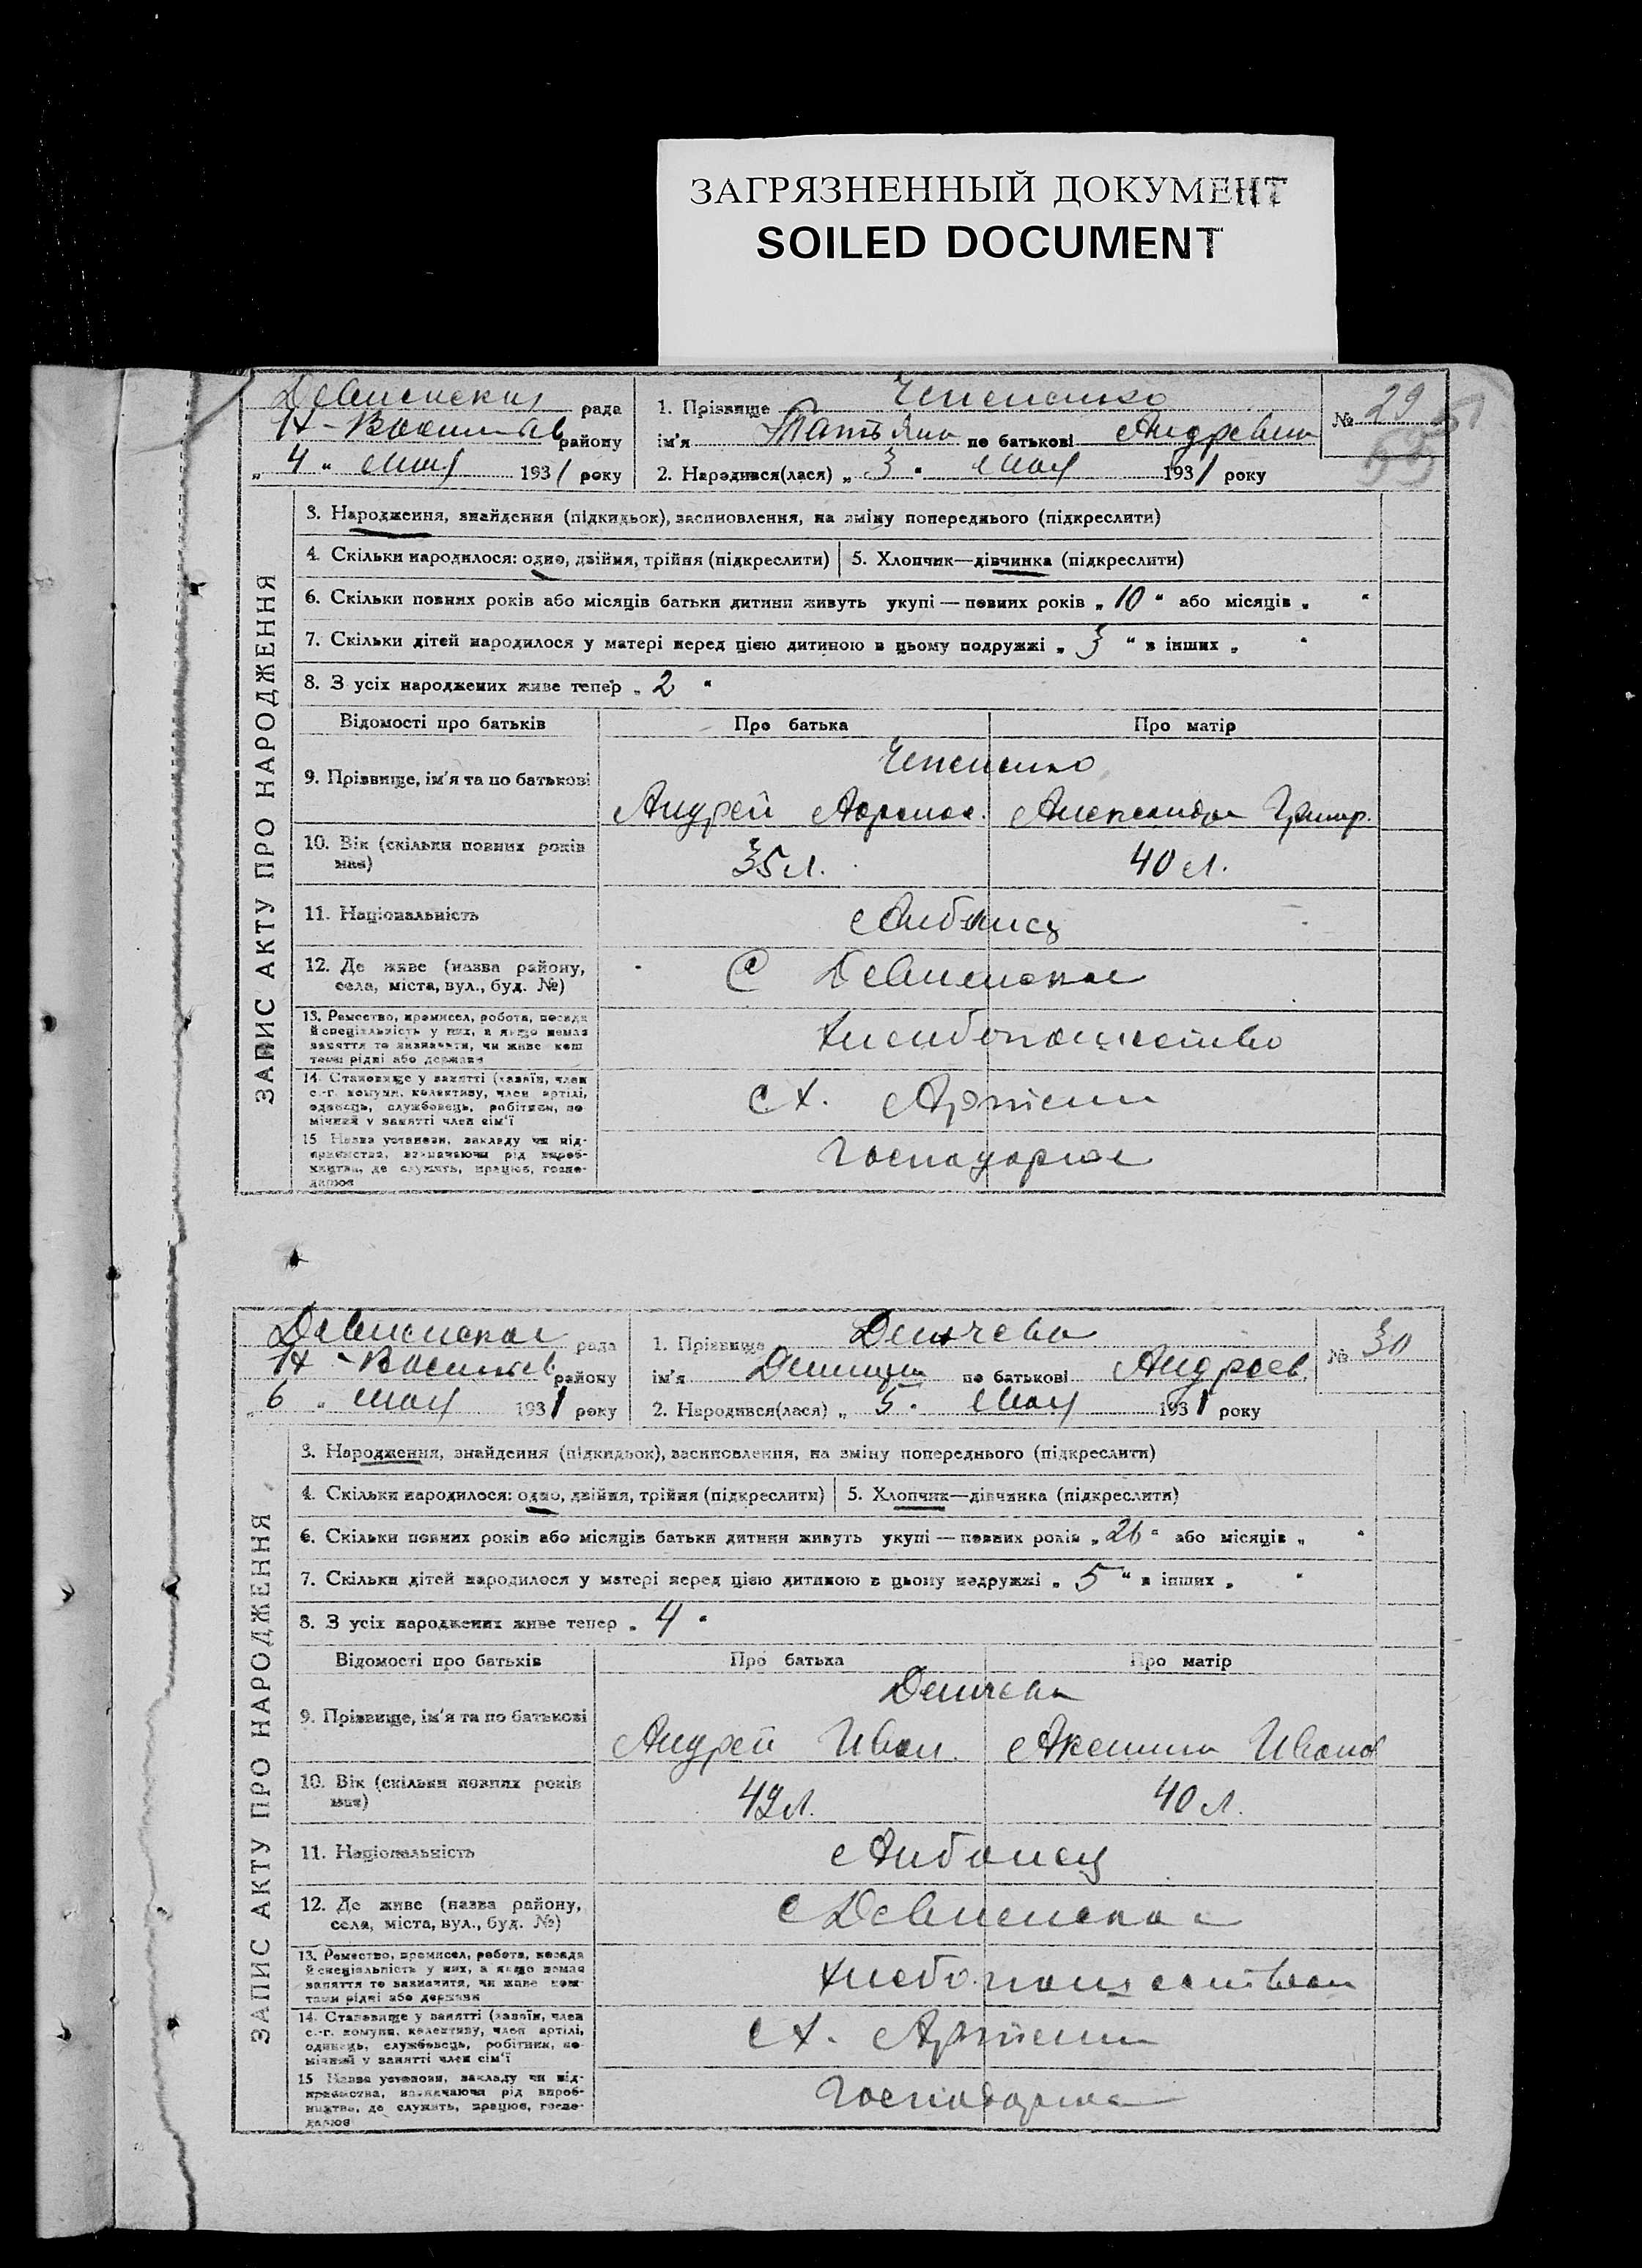 ЗАГРЯЗНЕННЫЙ ДОКУМЕНТ
SOILED DOCUMENT
рада
району
„ 4 “ мая 1931 року
1. Прізвище
ім'я Татьяна по батькові Андреевна
2. Народився(лася) „ 3 “ мая 1931 року
№ 29
ЗАПИС АКТУ ПРО НАРОДЖЕННЯ
3. Народження, знайдення (підкидьок), засиновлення, на зміну попереднього (підкреслити)
4. Скільки народилося: одно, двійня, трійня (підкреслити)
5. Хлопчик—дівчинка (підкреслити)
6. Скільки повних років або місяців батьки дитини живуть укупі — повних років „ 10 “ або місяців „ “
7. Скільки дітей народилося у матері перед цією дитиною в цьому подружжі „ 3 “ в інших „ “
8. З усіх народжених живе тепер „ 2 “
Відомості про батьків
Про батька
Про матір
9. Прізвище, ім'я та по батькові
Андрей
Александра
10. Вік (скільки повних років має)
35 л.
40 л.
11. Національність
Албанец
12. Де живе (назва району,
села, міста, вул., буд. №)
С
13. Ремество, промисел, робота, посада
й спеціальність у них, а якщо немає
заняття то визначити, чи живе кош
тами рідні або держави
Хлебопашество
14. Становище у занятті (хазяїн, член
с.-г. комуни, колективу, член артілі,
одинець, службовець, робітник, по
мічний у занятті член сім'ї
сх. Артели
15 Назва установи, закладу чи під-
приємства, визначаючи рід вироб-
ництва, де служить, працює, госпо-
дарює
рада
району
„ 6 “ мая 1931 року
1. Прізвище
ім'я по батькові Андреев.
2. Народився(лася) „ 5 “ мая 1931 року
№ 30
ЗАПИС АКТУ ПРО НАРОДЖЕННЯ
3. Народження, знайдення (підкидьок), засиновлення, на зміну попереднього (підкреслити)
4. Скільки народилося: одно, двійня, трійня (підкреслити)
5. Хлопчик—дівчинка (підкреслити)
6. Скільки повних років або місяців батьки дитини живуть укупі — повних років „ 26 “ або місяців „ “
7. Скільки дітей народилося у матері перед цією дитиною в цьому подружжі „ 5 “ в інших „ “
8. З усіх народжених живе тепер „ 4 “
Відомості про батьків
Про батька
Про матір
9. Прізвище, ім'я та по батькові
Андрей Иван.
Иванов
10. Вік (скільки повних років має)
л.
40 л.
11. Національність
Албанец
12. Де живе (назва району,
села, міста, вул., буд. №)
с
13. Ремество, промисел, робота, посада
й спеціальність у них, а якщо немає
заняття то визначити, чи живе кош-
тами рідні або держави
14. Становище у занятті (хазяїн, член
с.-г. комуни, колективу, член артілі,
одинець, службовець, робітник, по-
мічний у занятті член сім'ї
сх. Артели
15 Назва установи, закладу чи під-
приємства, визначаючи рід вироб-
ництва, де служить, працює, госпо-
дарює